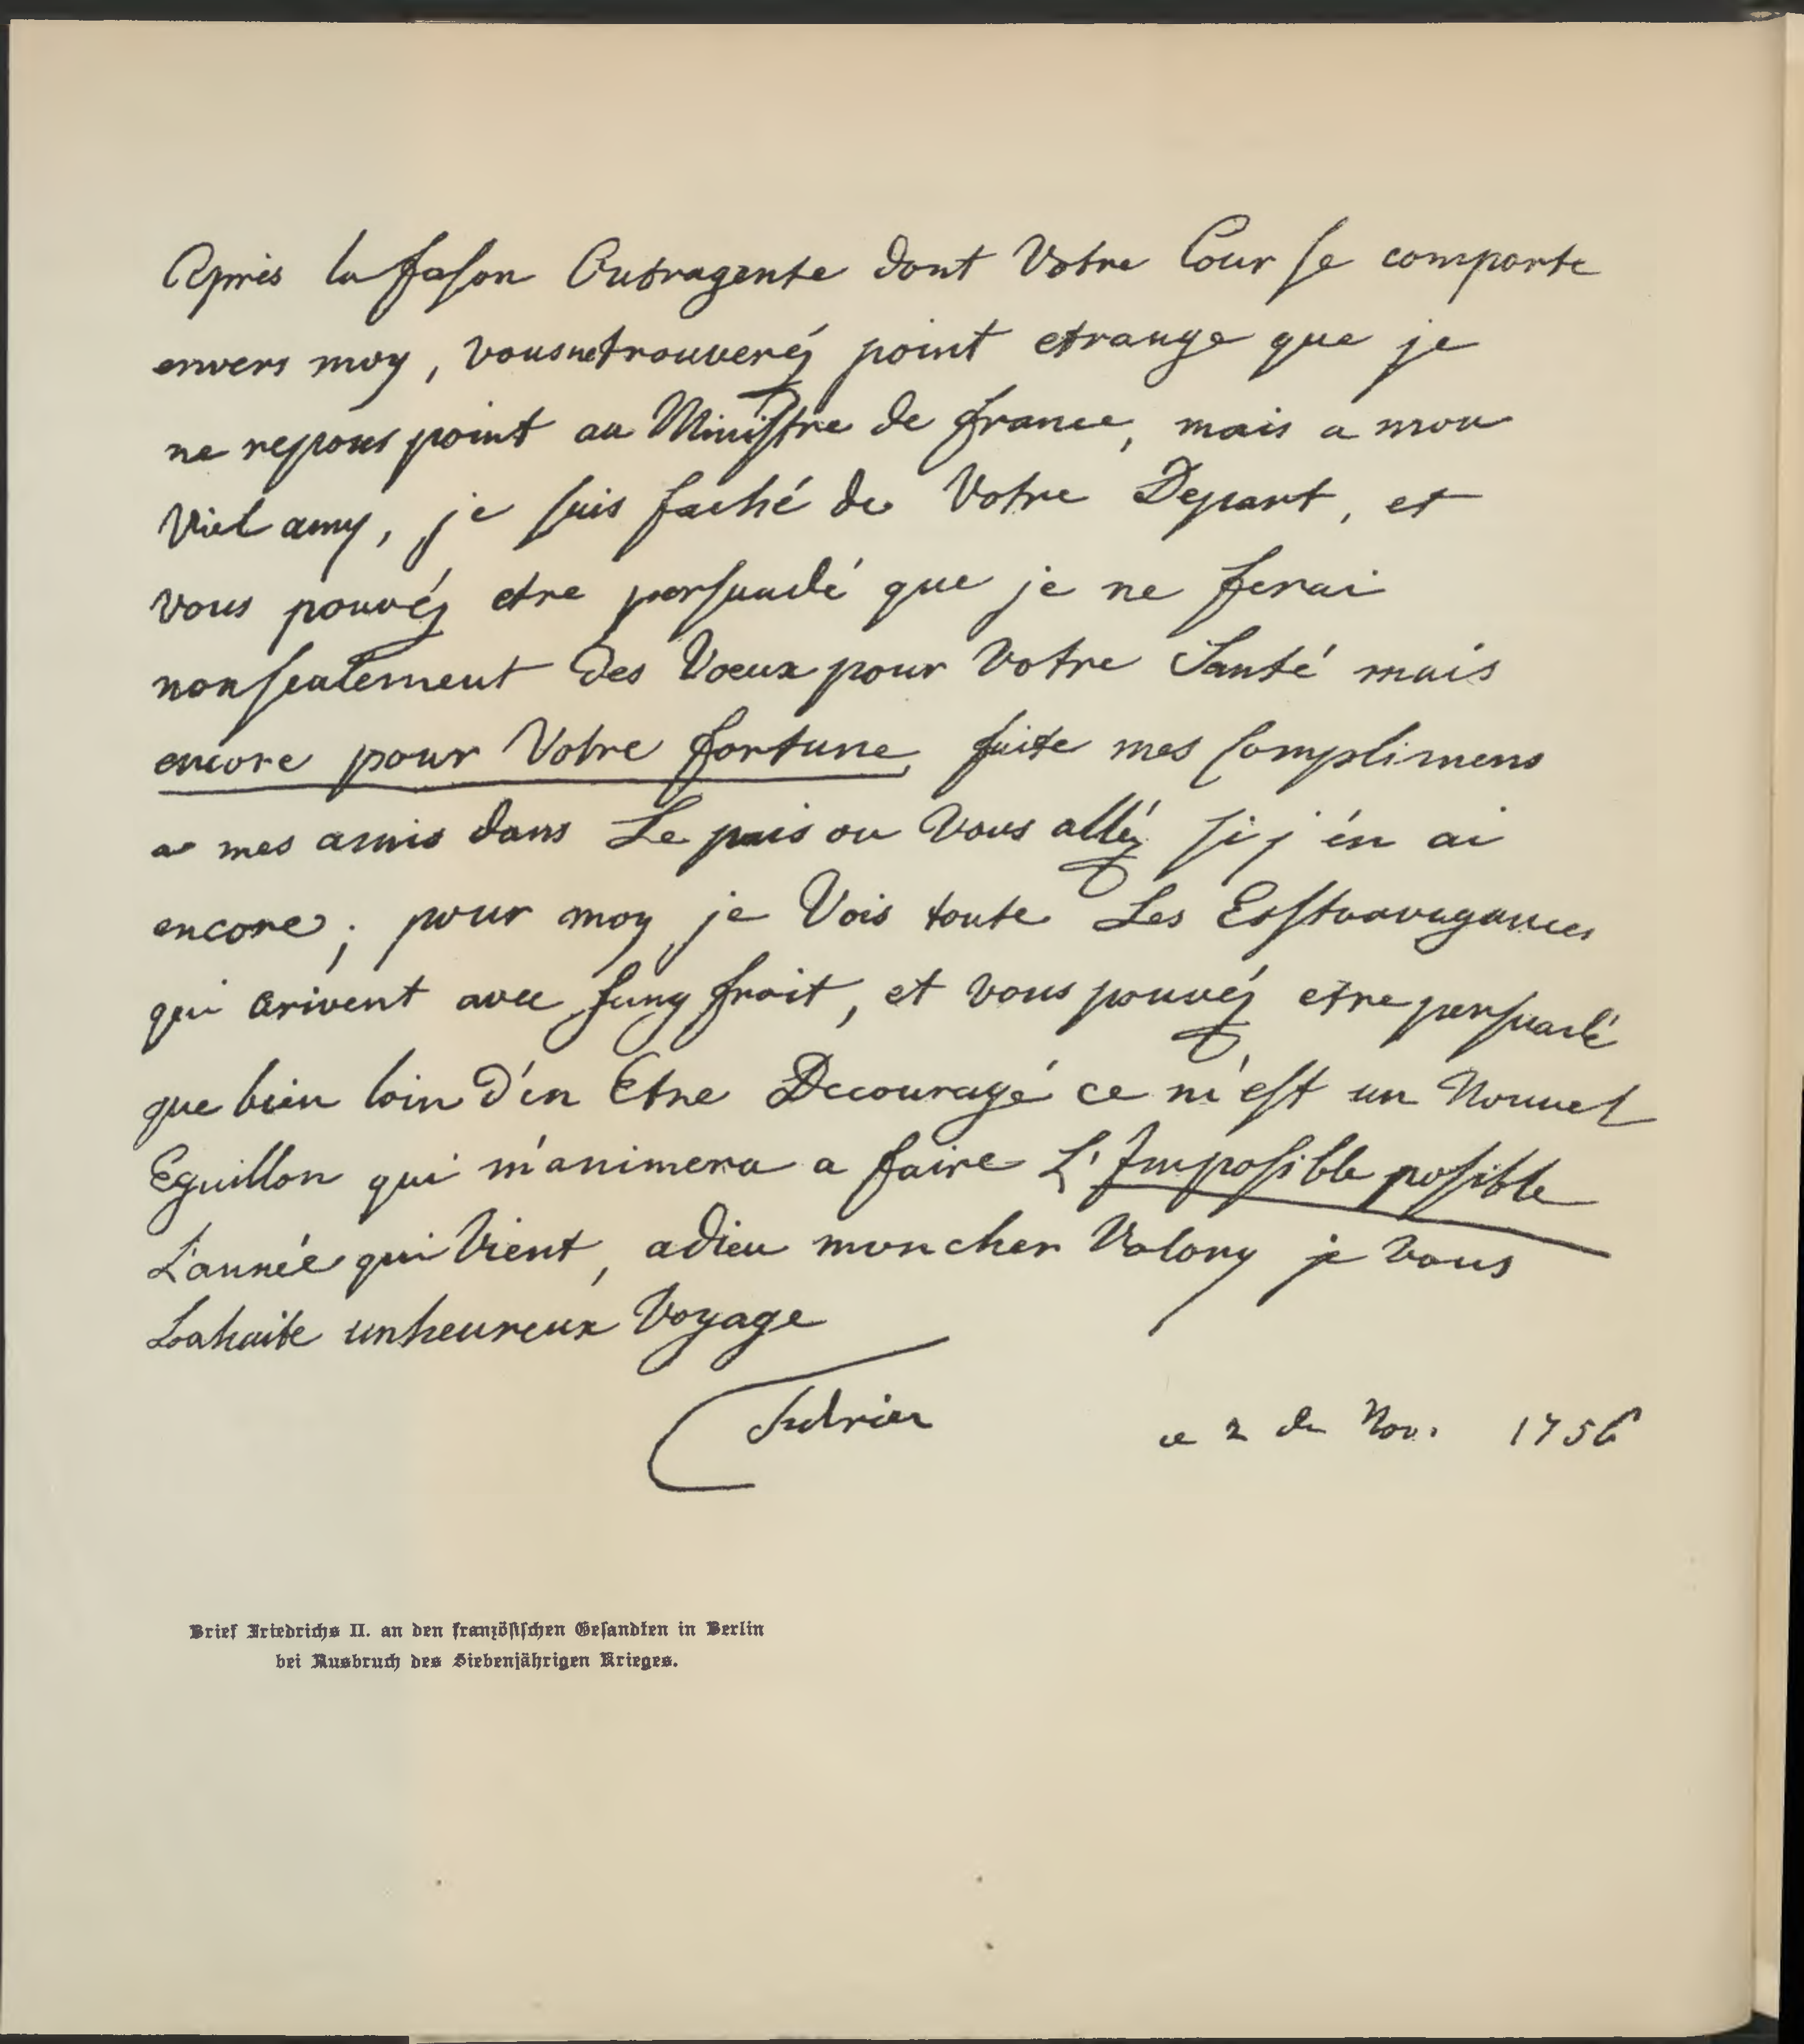 Après la fason Outragente dont Votre Cour se comporte
envers moy, vous ne trouveréz point etrange que je
ne repons point au Ministre de france, mais a mon
Viel amy, je suis faché de Votre Depart, et
vous pouvéz etre persuadé que je ne ferai
non seulement des Voeux pour Votre Santé mais
encore pour Votre fortune, faite mes Complimens
a mes amis dans Le païs ou Vous alléz si j'én ai
encore; pour moy je Vois toute Les Esstravagances
qui arivent avec sang froit, et vous pouvéz etre persuadé
que bien loin D'én Etre Decouragé ce m'est un Nouvel
Eguillon qui m'animera a faire L'Imposible posible
L'année qui Vient, adieu mon cher Valory je Vous
Souhaite un heureux Voyage
Federic
ce 2 de Nov. 1756
Brief Friedrichs II. an den französischen Gesandten in Berlin
bei Ausbruch des Siebenjährigen Krieges.